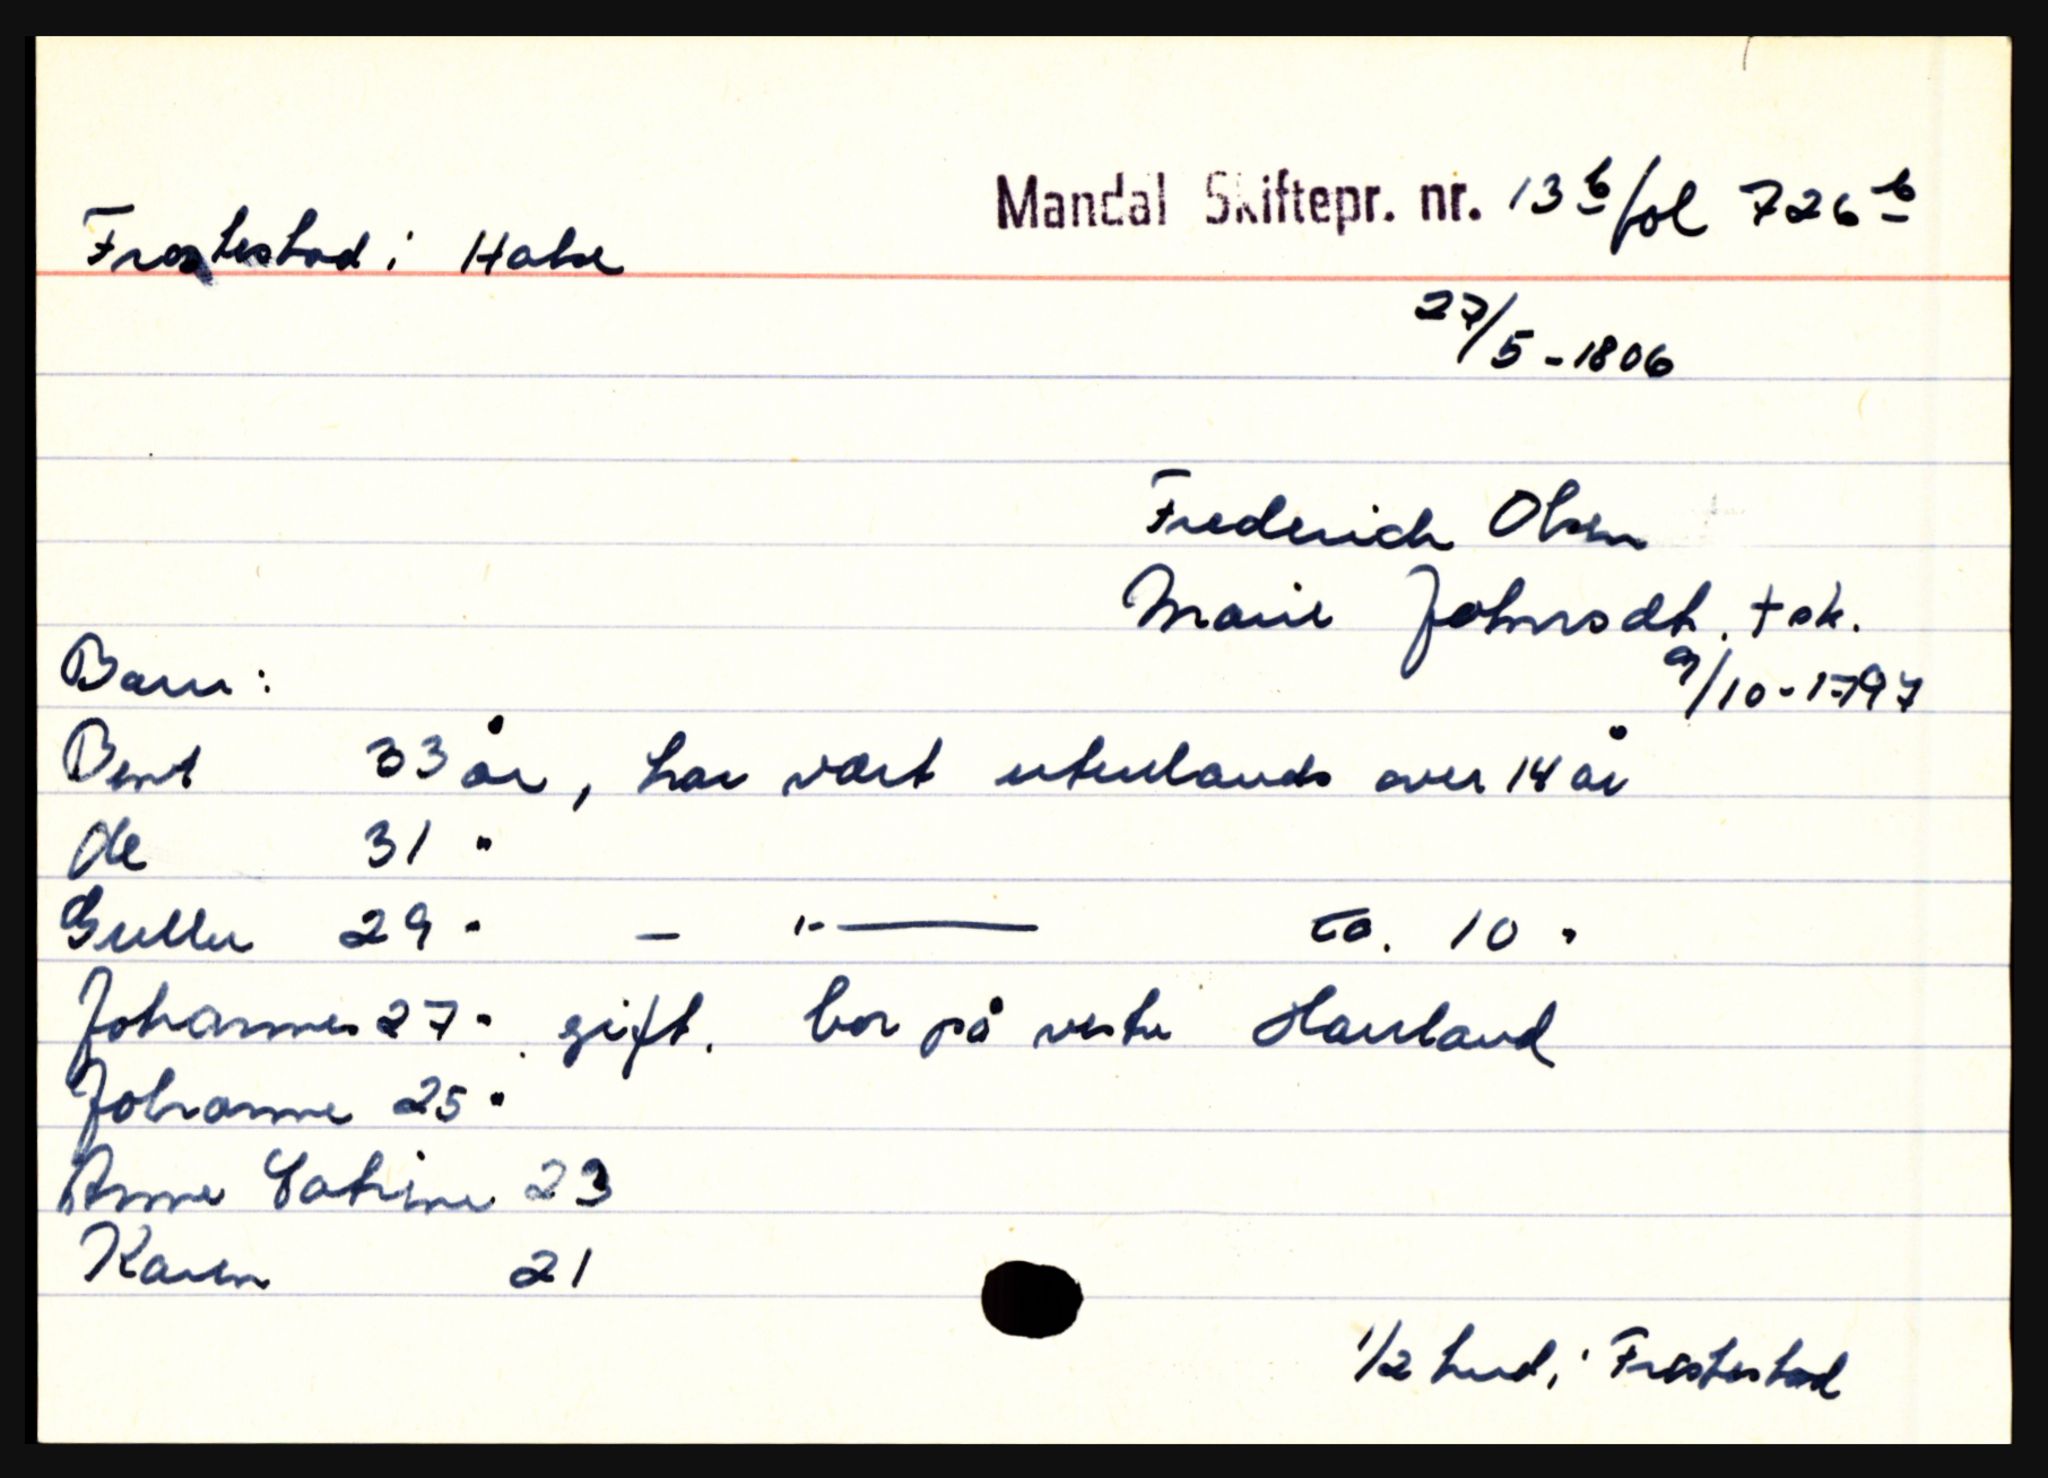 Mandal Skiftepr. nr. 13 b/fol 726 b
Frøstestad i Halse
27/5 - 1806
Frederich Olsen
Marie Johnsdt. + sk.
9/10 - 1797
Barn:
Bent 33 år, har vært utenlands over 14 år
Ole 31 "
Guller 29 " — " — ca. 10 "
Johannes 27 " gift. bor på vestre Haurland
Johanne 25 "
Anne Catrine 23
Karen 21
1/2 hud i Frøstestad